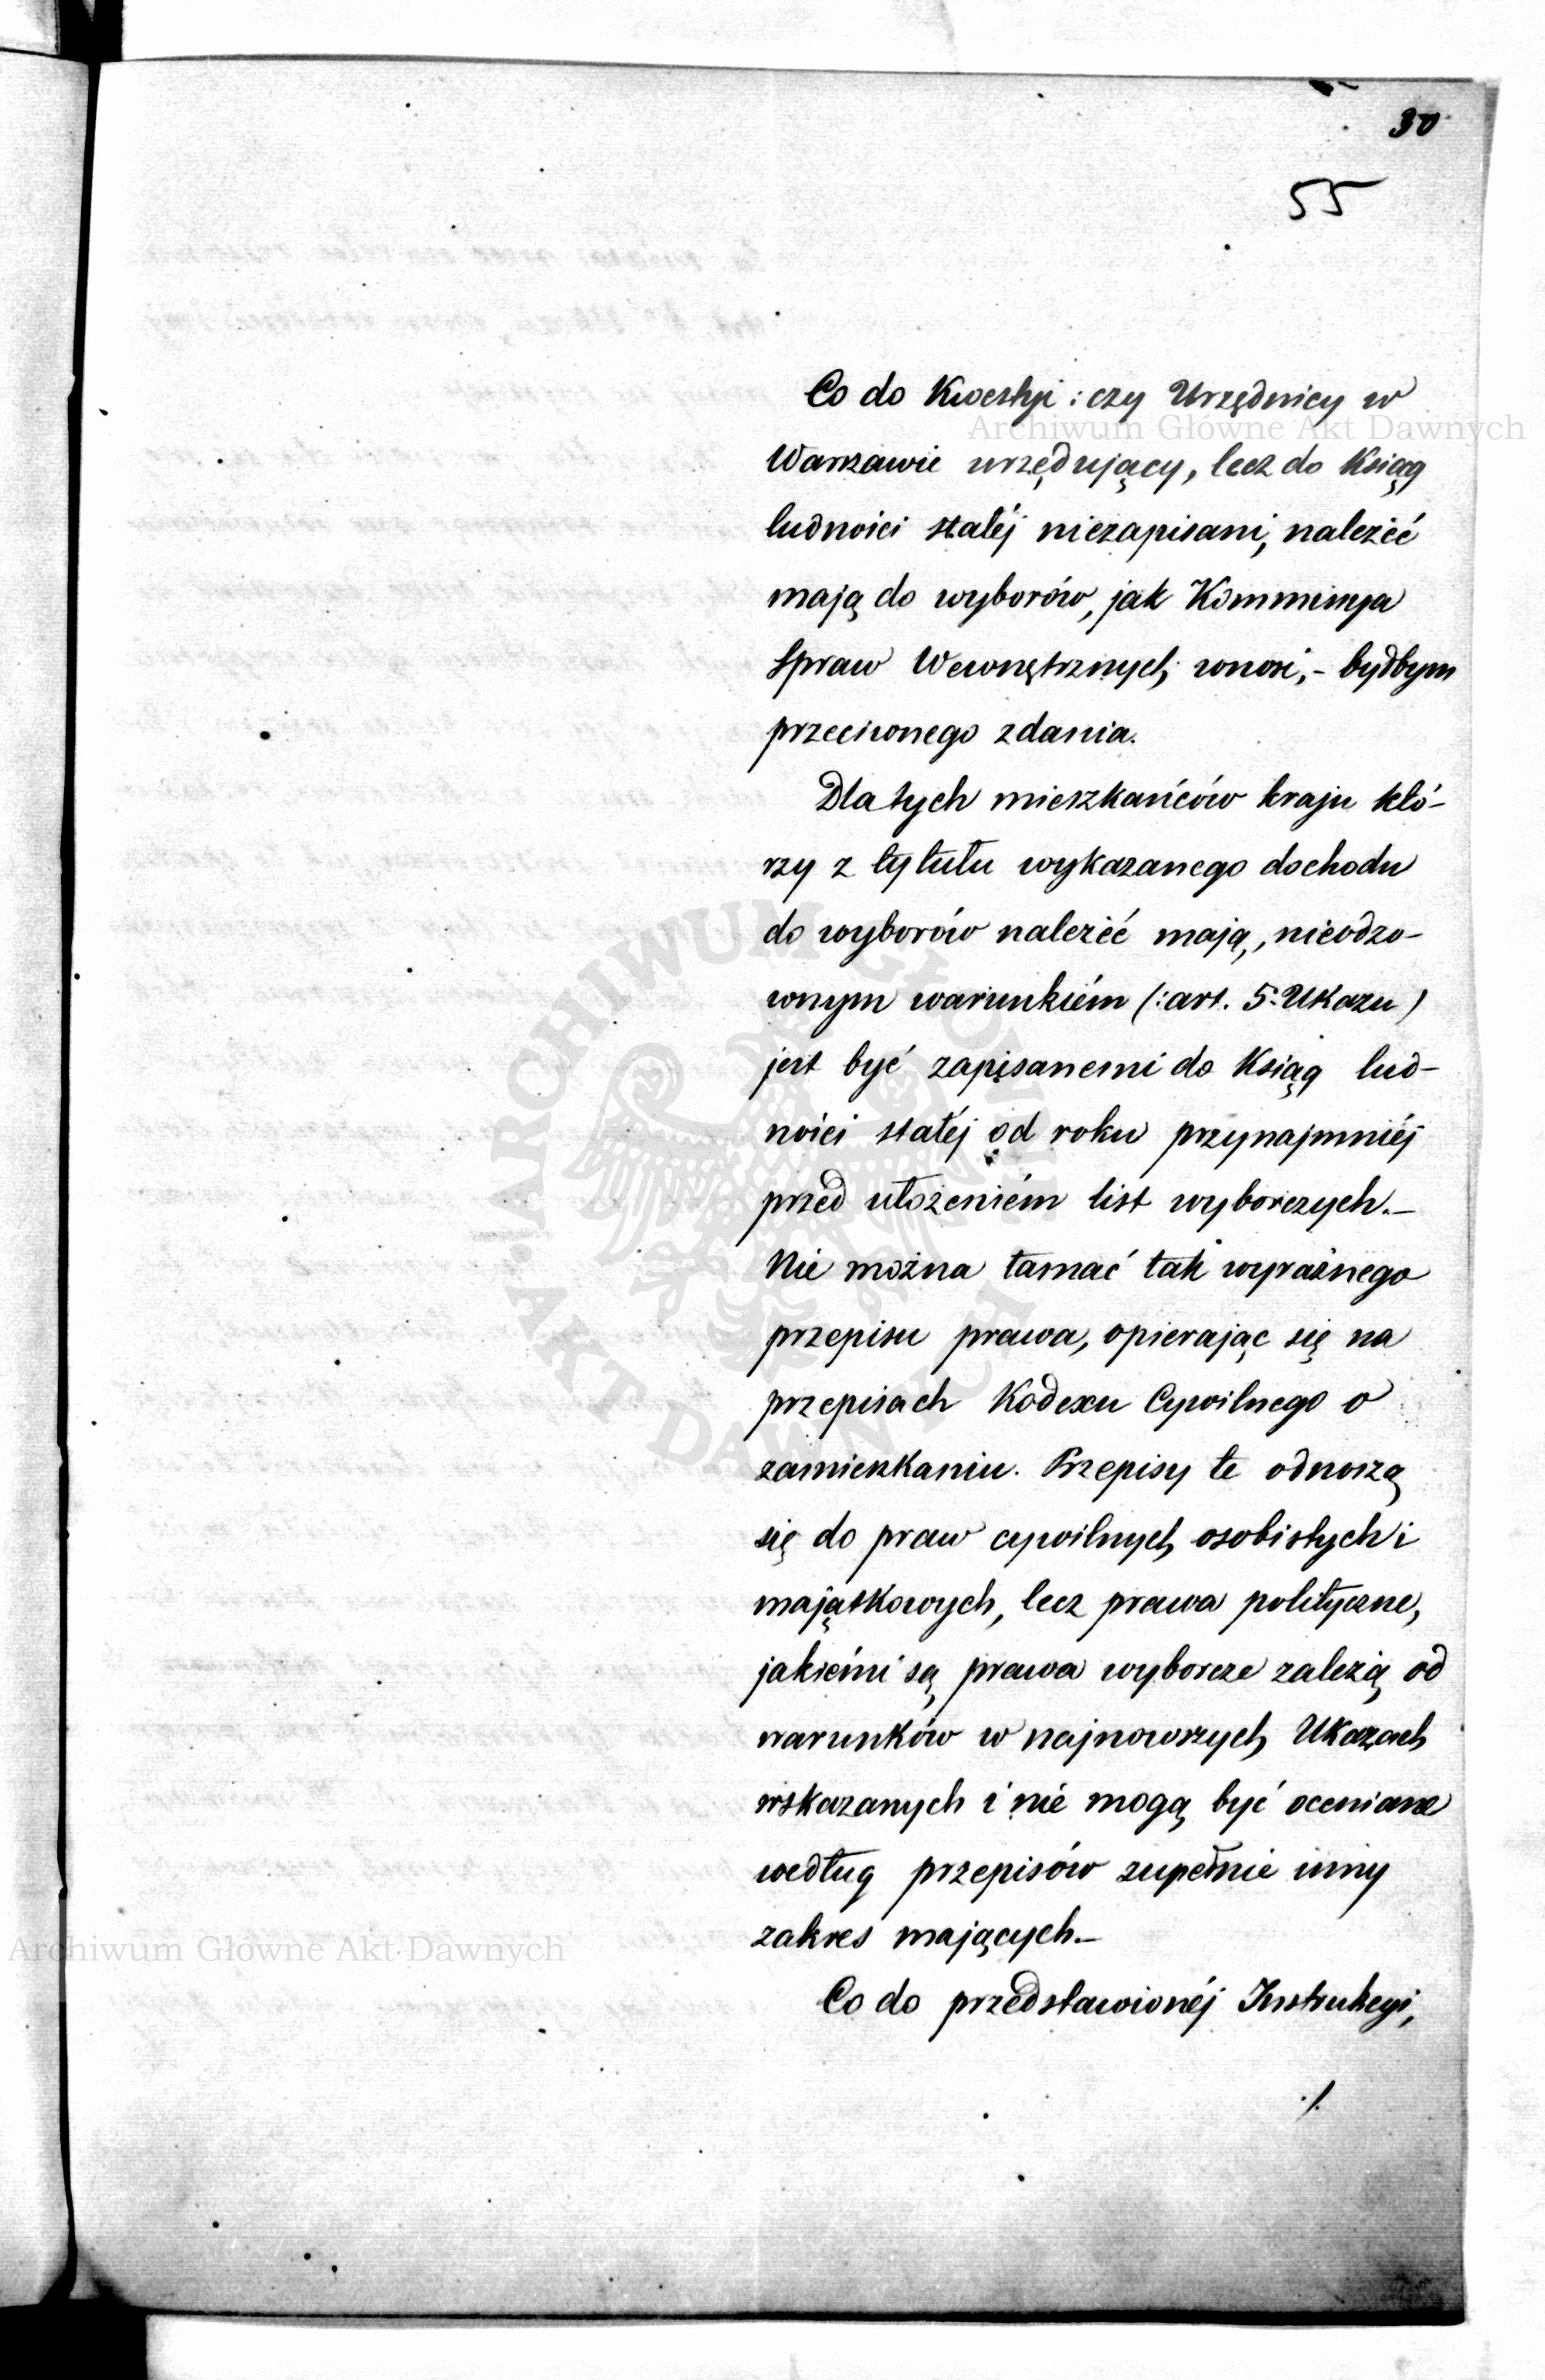 30
55
Co do Kwestyi : czy Urzędnicy w
Warszawie urzędujący, lecz do Ksiąg
ludności stałéj niezapisani, należéć
mają do wyborów, jak Kommissya
Spraw Wewnętrznych wnosi, - byłbym
przeciwnego zdania.
Dla tych mieszkańców kraju któ-
rzy z tytułu wykazanego dochodu
do wyborów należéć mają, nieodzo-
wnym warunkiém (: art. 5: Ukazu)
jest być zapisanemi do Ksiąg lud-
ności stałéj od roku przynajmniéj
przed ułożeniém list wyborczych.-
Nie można łamać tak wyraźnego
przepisu prawa, opierając się na
przepisach Kodexu Cywilnego o
zamieszkaniu. Przepisy te odnoszą
się do praw cywilnych osobistych i
majątkowych, lecz prawa polityczne,
jakiémi są prawa wyborcze zależą od
warunków w najnowszych Ukazach
wskazanych i nie mogą być oceniane
według przepisów zupełnie inny
zakres mających.-
Co do przedstawionéj Instrukcyi,
./.
Archiwum Główne Akt Dawnych
Archiwum Główne Akt Dawnych
ARCHIWUM GŁÓWNE
AKT DAWNYCH